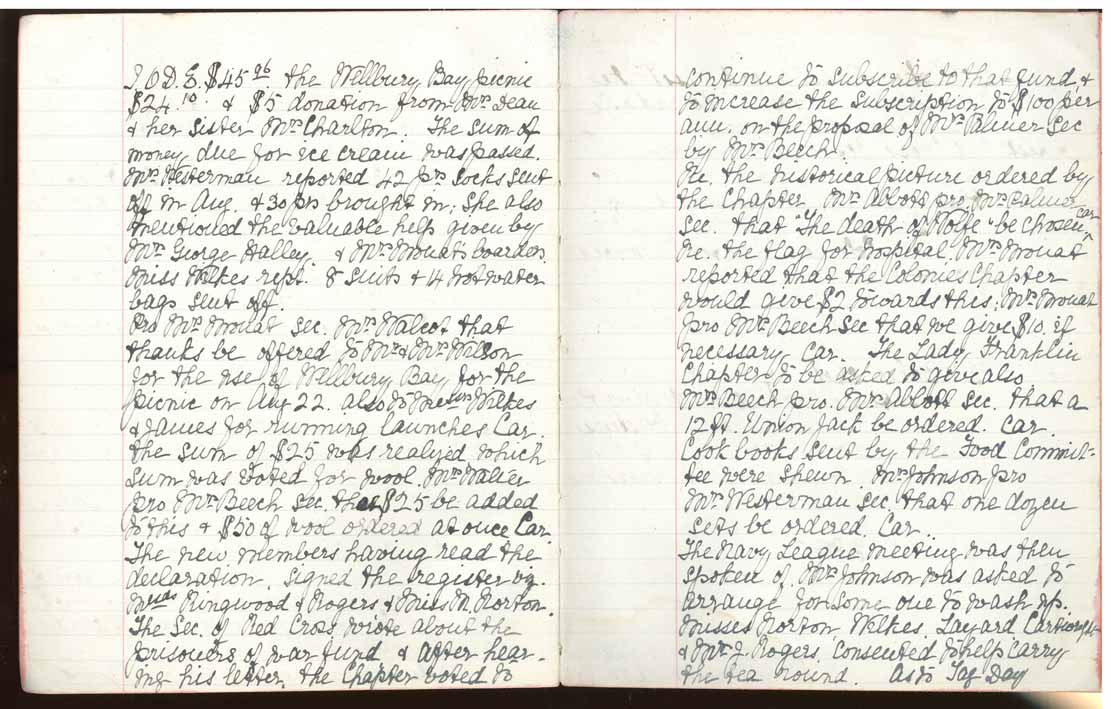 I.O.D.E. $45.96 the Wellbury Bay picnic
$24.10 & $5 donation from Mrs Dean
& her sister Mrs Charlton. The sum of
money due for ice cream was passed.
Mrs Westerman reported 42 prs socks sent
off in Aug. & 30 prs brought in; she also
mentioned the valuable help given by
Mrs George Halley & Mrs Mouat's boarders.
Miss Wilkes rept. 8 suits & 4 hot water
bags sent off.
Pro Mrs Mouat sec. Mrs Walcot that
thanks be offered to Mr & Mrs Wilson
for the use of Wellbury Bay for the
picnic on Aug 22. also to Messrs Wilkes
& James for running launches Car.
The sum of $25 was realized which
sum was voted for wool. Mrs Walter
pro Mrs Beech sec. that $25 be added
to this & $50 of wool ordered at once Car.
The new members having read the
declaration, signed the register viz.
Mesds Ringwood & Rogers & Miss M. Norton.
The Sec. of Red Cross wrote about the
prisoners of war fund & after hear-
ing his letter, the Chapter voted to
continue to subscribe to that fund, &
to increase the subscription to $100 per
ann. on the proposal of Mrs Palmer Sec
by Mrs Beech.
Re. the historical picture ordered by
the Chapter Mrs Abbott pro. Mrs Palmer
Sec. that "The death of Wolfe" be chosen, car
Re. the flag for hospital. Mrs Mouat
reported that the Colonies Chapter
would give $2 towards this; Mrs Mouat
pro Mrs Beech Sec that we give $10. if
necessary car. The Lady Franklin
Chapter to be asked to give also.
Mrs Beech pro. Mrs Abbott sec. that a
12 ft. Union Jack be ordered. car.
Cook books sent by the Food Commit-
tee were shewn Mrs Johnson pro
Mrs Westerman sec. that one dozen
sets be ordered. Car.
The Navy League meeting was then
spoken of. Mrs Johnson was asked to
arrange for some one to wash up.
Misses Norton, Wilkes, Layard, Cartwright
& Mrs J. Rogers, consented to help carry
the tea round. As to Tag Day